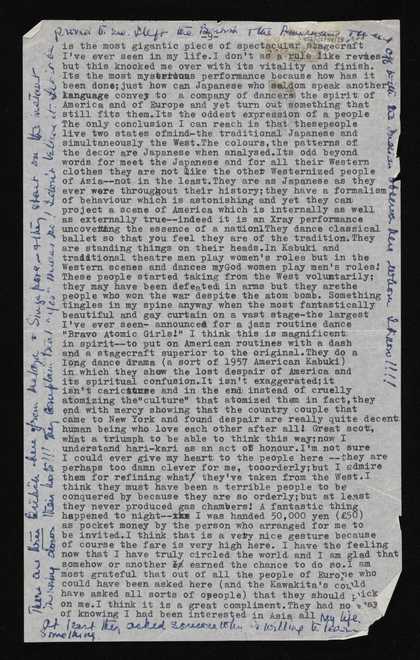 proved to me. I left the
is the most gigantic piece of spectacular stagecraft
I've ever seen in my life.I don't as a rule like revues
but this knocked me over with its vitality and finish.
Its the most mysterious performance because how has it
been done;just how can Japanese who seldom speak another
language convey to a company of dancers the spirit of
America and of Europe and yet turn out something that
still fits them.Its the oddest expression of a people
The only conclusion I can reach is that thesepeople
live two states ofmind-the traditional Japanese and
simultaneously the West.The colours,the patterns of
the decor are Japanese when analysed.Its odd beyond
words for meet the Japanese and for all their Western
clothes they are not like the other Westernized people
of Asia--not in the least.They are as Japanese as they
ever were throughout their history;they have a formalism
of behaviour which is astonishing and yet they can
project a scene of America which is internally as well
as externally true--indeed it is an Xray performance
uncovering the essence of a nation!They dance classical
ballet so that you feel they are of the tradition.They
are standing things on their heads.In Kabuki and
traditional theatre men play women's roles but in the
Western scenes and dances myGod women play men's roles!
These people started taking from the West voluntarily;
they may have been defeated in arms but they arethe
people who won the war despite the atom bomb. Something
tingles in my spine anyway when the most fantastically
beautiful and gay curtain on a vast stage-the largest
I've ever seen- announced for a jazz routine dance
"Bravo Atomic Girls!" I think this is magnificent
in spirit--to put on American routines with a dash
and a stagecraft superior to the original.They do a
long dance drama (a sort of 1957 American Kabuki)
in which they show the lost despair of America and
its spiritual confusion.It isn't exaggerated;it
isn't caricature and in the end instead of cruelly
atomizing the"culture" that atomized them in fact,they
end with mercy showing that the country couple that
came to New York and found despair are really quite decent
human being who love each other after all! Great scot,
what a triumph to be able to think this way;now I
understand hari-kari as an act of honour.I'm not sure
I could ever give my heart to the people here --they are
perhaps too damn clever for me, tooorderly;but I admire
them for refining what/ they've taken from the West.I
think they must have been a terrible people to be
conquered by because they are so orderly;but at least
they never produced gas chambers! A fantastic thing
happened to night--- I was handed 50,000 yen (£50)
as pocket money by the person who arranged for me to
be invited.I think that is a very nice gesture because
of course the fare is very high here. I have the feeling
now that I have truly circled the world and I am glad that
somehow or another earned the chance to do so.I am
most grateful that out of all the people of Europe who
could have been asked here (and the Kawakita's could
have asked all sorts of opeople) that they should pick
on me.I think it is a great compliment.They had no way
of knowing I had been interested in Asia all my life.
At least they asked someone who is willing to learn
something
There are two British here from Malaya & Singapore - & they